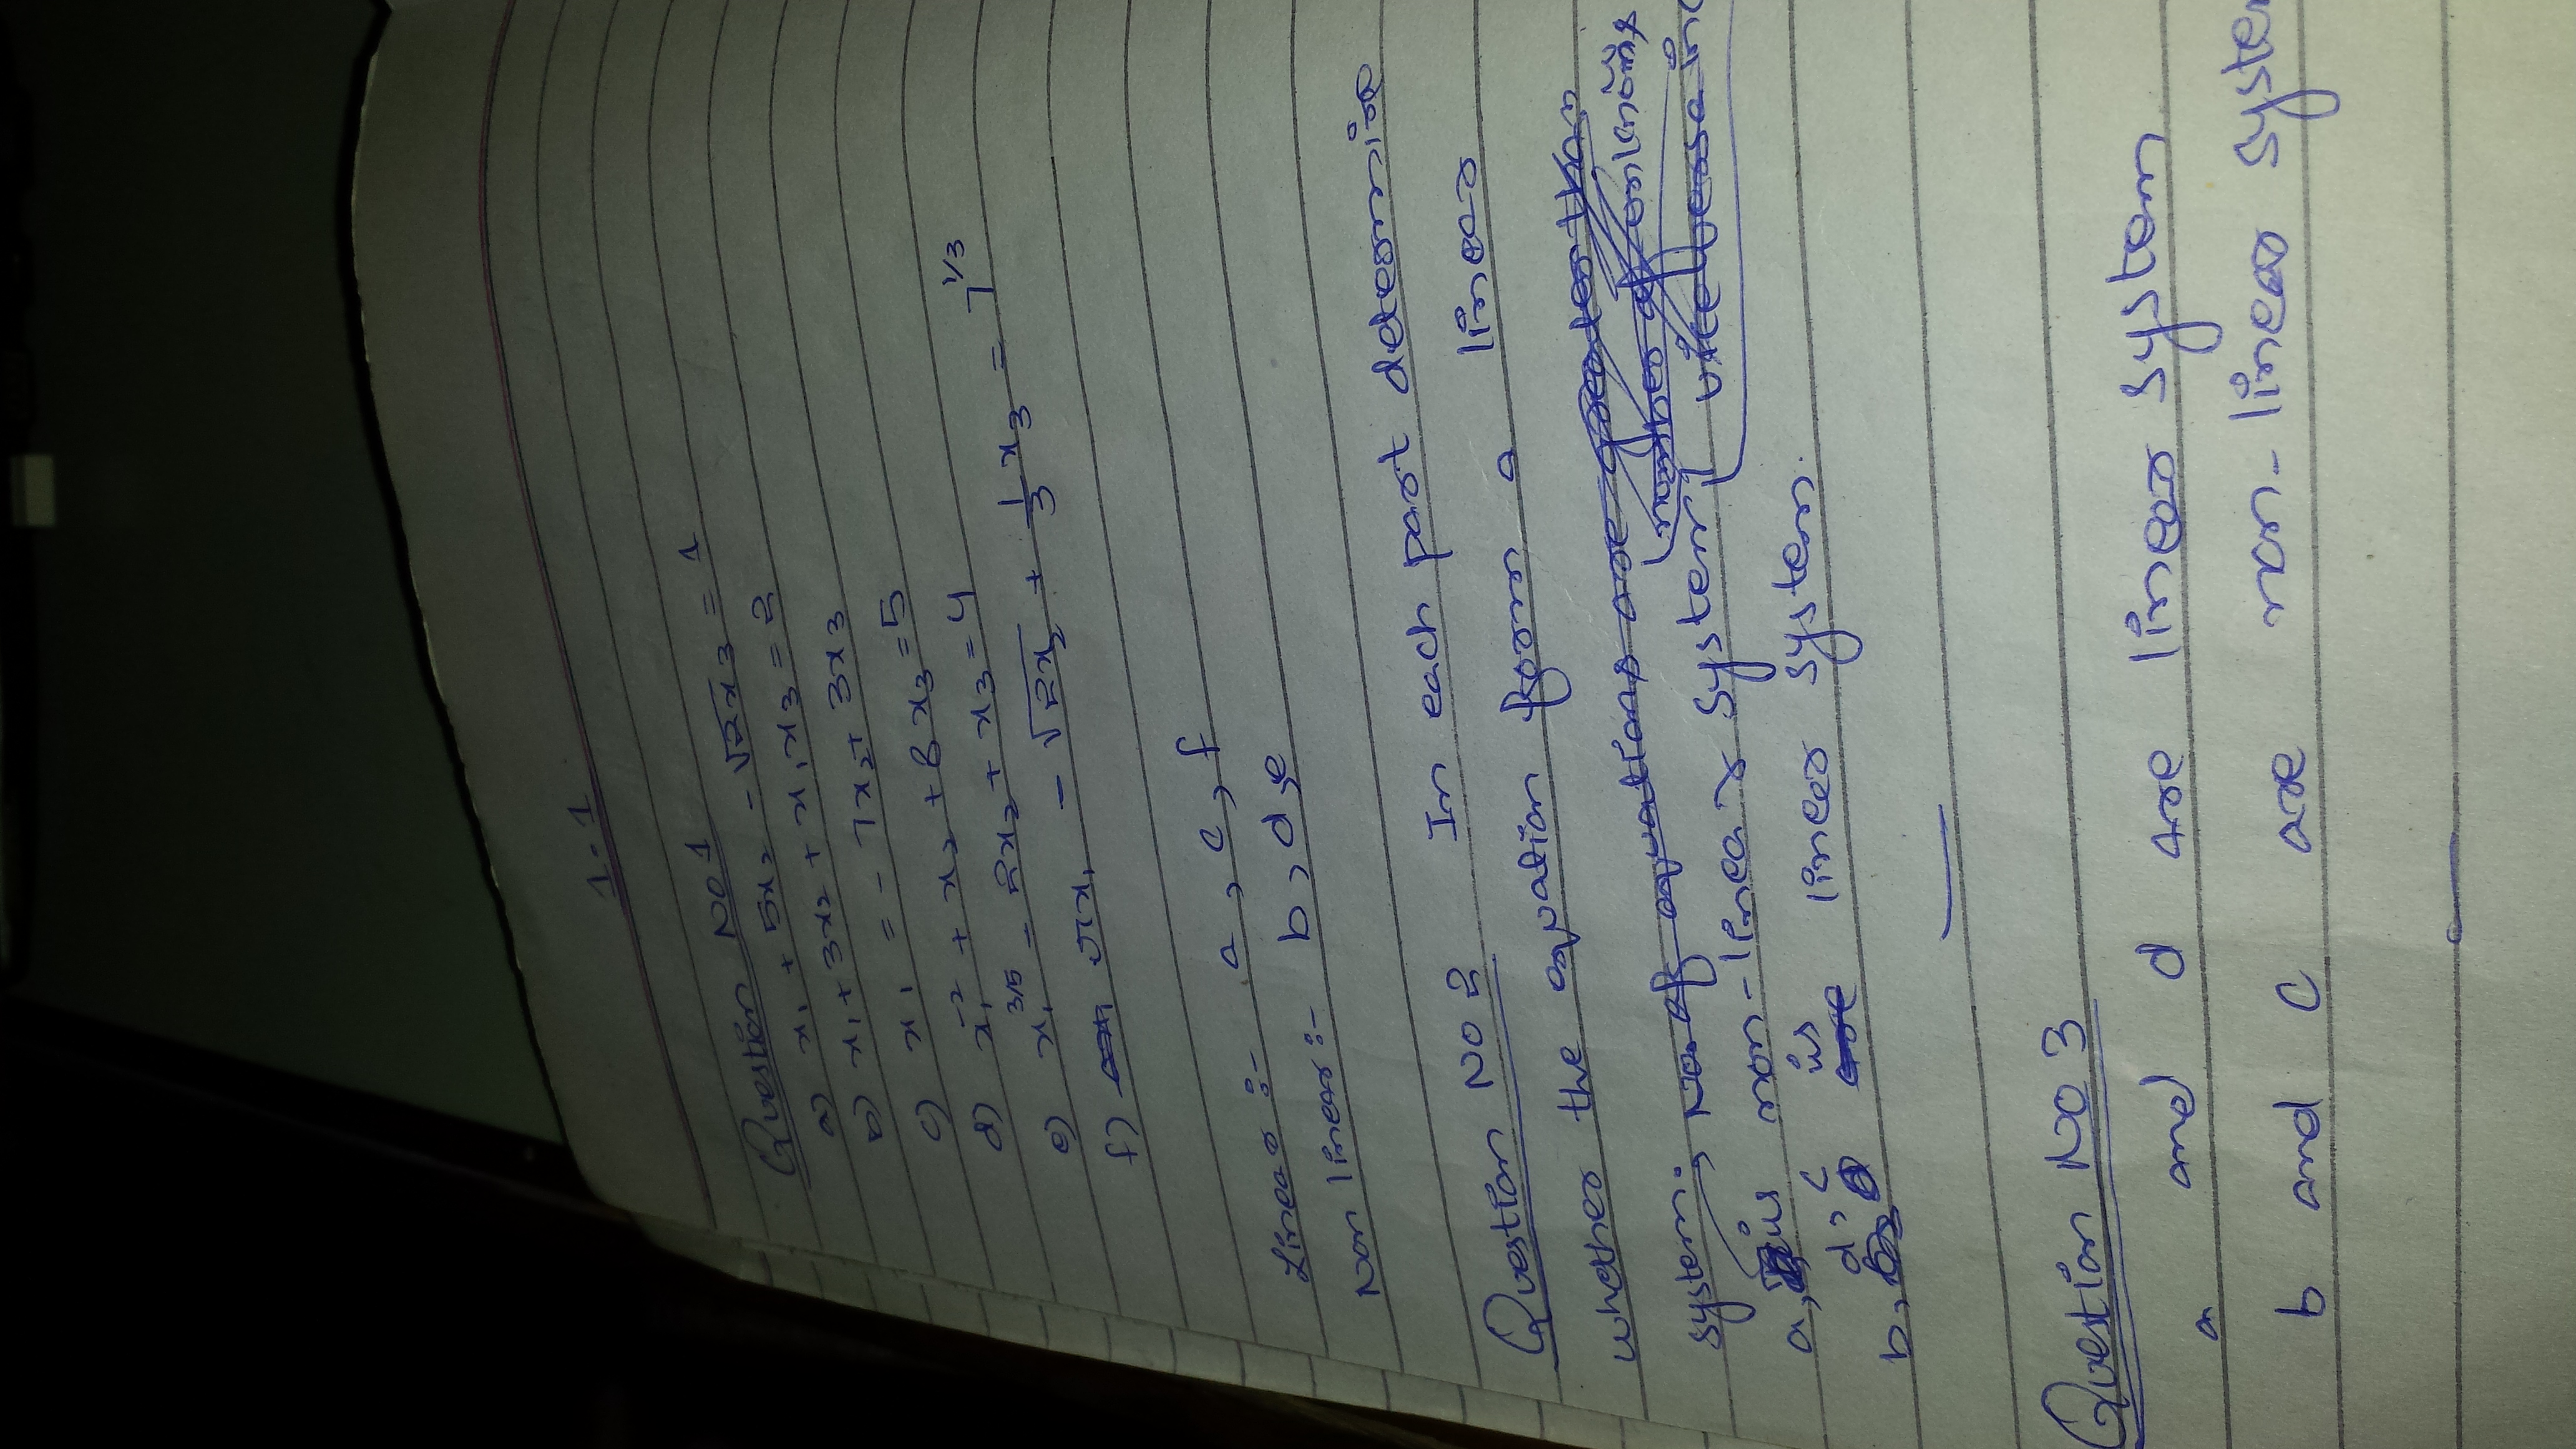 1.1
Question No 1
a) x₁ + 5x₂ - √2x₃ = 1
b) x₁ + 3x₂ + x₁x₃ = 2
c) x₁ = - 7x₂ + 3x₃
d) x₁⁻² + x₂ + 8x₃ = 5
e) x₁^3/5 - 2x₂ + x₃ = 4
f) πx₁ - √2x₂ + 1/3 x₃ = 7^1/3
Linear :- a, c, f
Non linear :- b, d, e
Question No 2 In each part determine
whether the equation form a linear
system. No. of equations are greater than
number of unknowns
a, is non-linear system vice versa in
d, c is
b, are linear system.
Question No 3
a and d are linear system
b and c are non-linear system